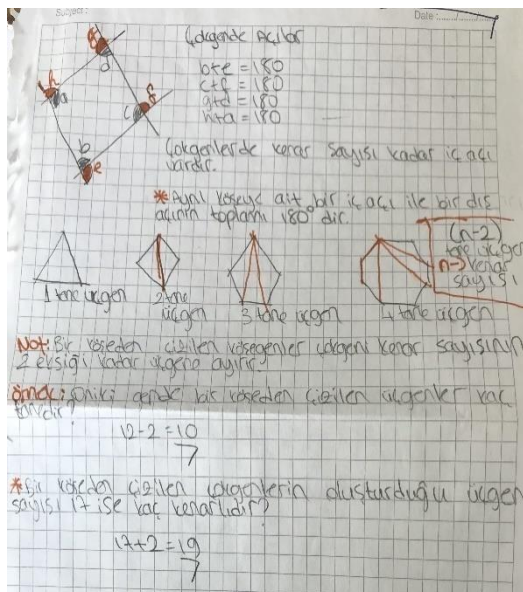 Subject:
Date:
Çokgende Açılar
b+e = 180
c+f = 180
g+d = 180
h+a = 180
g
d
h
a
c
f
b
e
Çokgenlerde kenar sayısı kadar iç açı
vardır.
*Aynı köşeye ait bir iç açı ile bir dış
açının toplamı 180° dir.
(n-2)
tane üçgen
n-> kenar
sayısı
1 tane üçgen
2 tane
üçgen
3 tane üçgen
4 tane üçgen
Not: Bir köşeden çizilen köşegenler çokgeni kenar sayısının
2 eksiği kadar üçgene ayırır.
Örnek: oniki gende bir köşeden çizilen üçgenler kaç
tanedir?
12-2=10
*Bir köşeden çizilen çokgenlerin oluşturduğu üçgen
sayısı 17 ise kaç kenarlıdır?
17+2=19